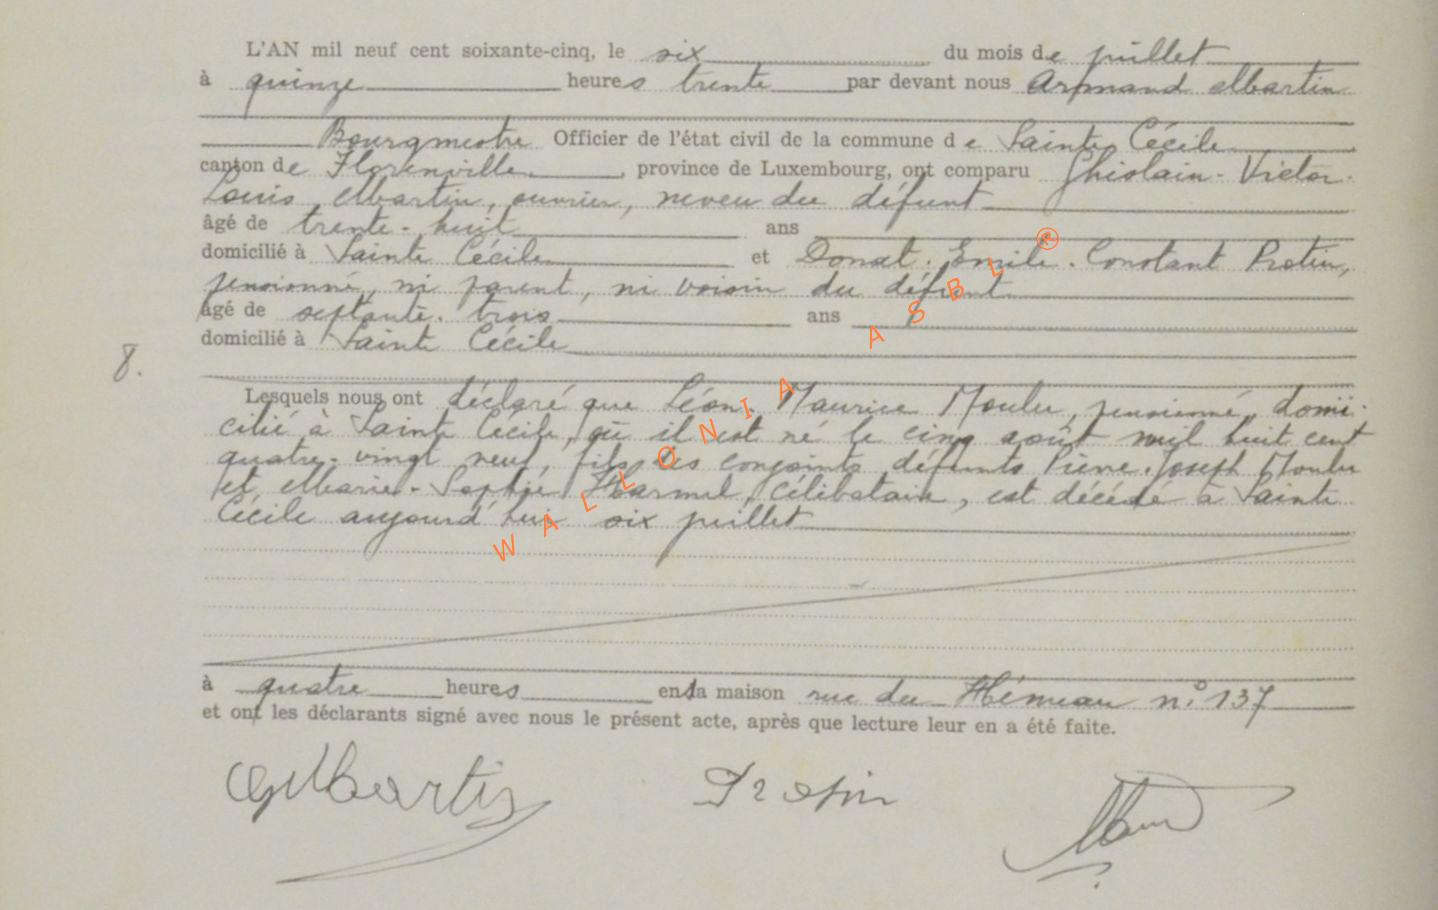 L'AN mil neuf cent soixante-cinq, le six du mois de juillet
à quinze heures trente par devant nous Armand Martin
Bourgmestre Officier de l'état civil de la commune de Sainte Cécile
canton de Florenville, province de Luxembourg, ont comparu Ghislain-Victor-
Louis Martin, ouvrier, neveu du défunt
âgé de trente-huit ans
domicilié à Sainte Cécile et Donat-Emile-Constant Protin,
pensionné, ni parent, ni voisin du défunt
âgé de septante-trois ans
domicilié à Sainte Cécile
8.
Lesquels nous ont déclaré que Léon-Maurice Moulu, pensionné, domi-
cilié à Sainte Cécile, où il est né le cinq août mil huit cent
quatre-vingt neuf, fils des conjoints défunts Pierre-Joseph Moulu
et Marie-Sophie Harmel, célibataire, est décédé à Sainte
Cécile aujourd'hui six juillet
à quatre heures en sa maison rue du n° 137
et ont les déclarants signé avec nous le présent acte, après que lecture leur en a été faite.
GMartin
WALLONIA ASBL ®